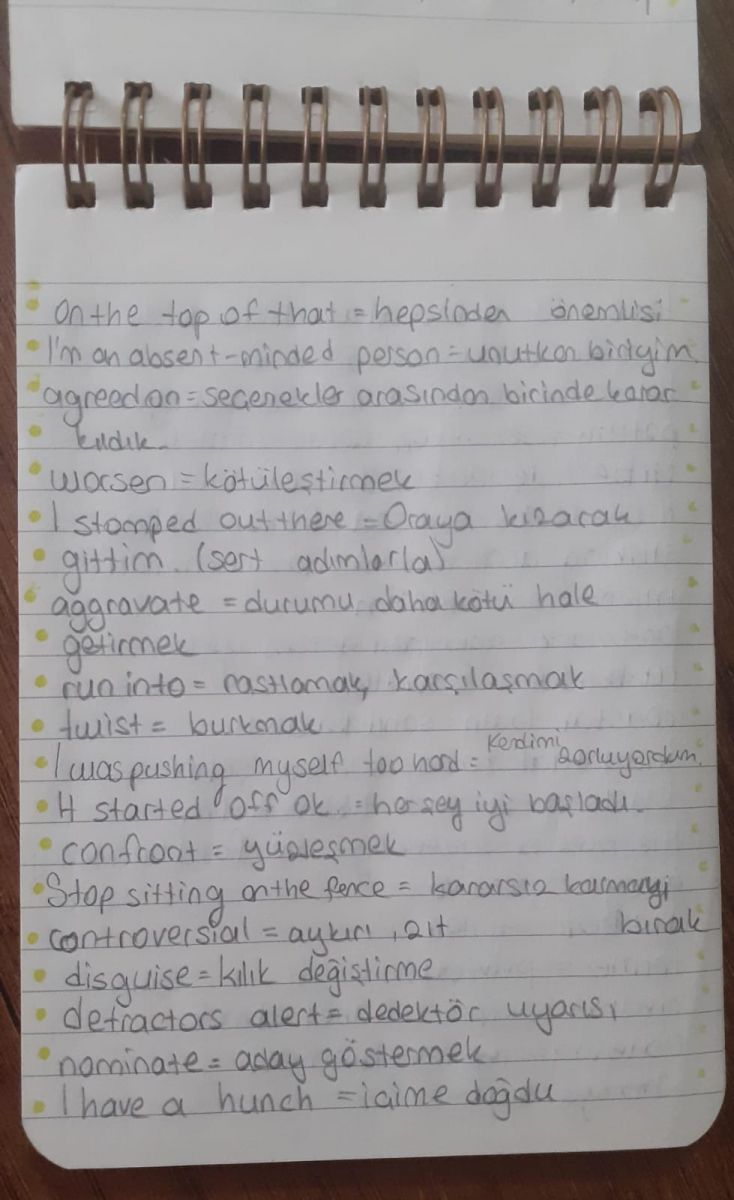 On the top of that = hepsinden önemlisi
I'm an absent-minded person = unutkan biriyim
agreed on = seçenekler arasından birinde karar
kıldık.
worsen = kötüleştirmek
I stomped out there = Oraya kızarak
gittim. (sert adımlarla)
aggravate = durumu daha kötü hale
getirmek
run into = rastlamak, karşılaşmak
twist = burkmak
I was pushing myself too hard = Kendimi zorluyordum.
It started off ok = herşey iyi başladı.
confront = yüzleşmek
Stop sitting on the fence = kararsız kalmayı
bırak
controversial = aykırı, zıt
disguise = kılık değiştirme
detractors alert = dedektör uyarısı
nominate = aday göstermek
I have a hunch = içime doğdu